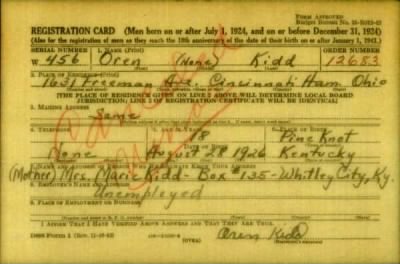 FORM APPROVED
REGISTRATION CARD (Men born on or after July 1, 1924, and on or before December 31, 1924)
(Also for the registration of men as they reach the 18th anniversary of the date of their birth on or after January 1, 1943.)
SERIAL NUMBER 1. NAME (Print) ORDER NUMBER
W 456 Oren (None) Kidd 12683
2. PLACE OF RESIDENCE (Print)
1631 Freeman Cincinnati Ham. Ohio
(THE PLACE OF RESIDENCE GIVEN ON LINE 2 ABOVE WILL DETERMINE LOCAL BOARD
JURISDICTION; LINE 2 OF REGISTRATION CERTIFICATE WILL BE IDENTICAL)
3. MAILING ADDRESS
Same
4. TELEPHONE 5. AGE IN YEARS 6. PLACE OF BIRTH
18 Pine Knot
None August 28 1926 Kentucky
7. NAME AND ADDRESS OF PERSON WHO WILL ALWAYS KNOW YOUR ADDRESS
(Mother) Mrs. Marie Kidd - Box #135 - Whitley City, Ky.
8. EMPLOYER'S NAME AND ADDRESS
Unemployed
9. PLACE OF EMPLOYMENT OR BUSINESS
I AFFIRM THAT I HAVE VERIFIED ABOVE ANSWERS AND THAT THEY ARE TRUE.
(OVER) Oren Kidd